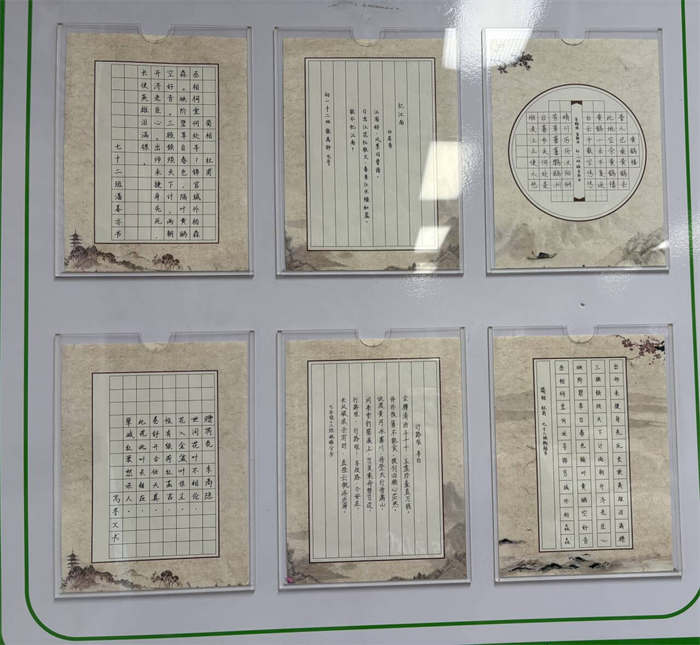 蜀相 杜甫
丞相祠堂何处寻?锦官城外柏森
森。映阶碧草自春色,隔叶黄鹂
空好音。三顾频烦天下计,两朝
开济老臣心。出师未捷身先死,
长使英雄泪满襟。
七十二班潘姜亦书
忆江南
白居易
江南好,风景旧曾谙。
日出江花红胜火,春来江水绿如蓝。
能不忆江南?
初一十二班
黄鹤楼
昔人已乘黄鹤去
此地空余黄鹤楼
黄鹤一去不复返
白云千载空悠悠
晴川历历汉阳树
芳草萋萋鹦鹉洲
日暮乡关何处是
烟波江上使人愁
赠荷花 李商隐
世间花叶不相伦,
花入金盆叶作尘。
惟有绿荷红菡萏,
卷舒开合任天真。
此花此叶长相映,
翠减红衰愁杀人。
行路难 李白
金樽清酒斗十千,玉盘珍羞直万钱。
停杯投箸不能食,拔剑四顾心茫然。
欲渡黄河冰塞川,将登太行雪满山。
闲来垂钓碧溪上,忽复乘舟梦日边。
行路难,行路难,多歧路,今安在。
长风破浪会有时,直挂云帆济沧海。
出师未捷身先死长使英雄泪满襟
三顾频烦天下计两朝开济老臣心
映阶碧草自春色隔叶黄鹂空好音
丞相祠堂何处寻锦官城外柏森森
蜀相 杜甫